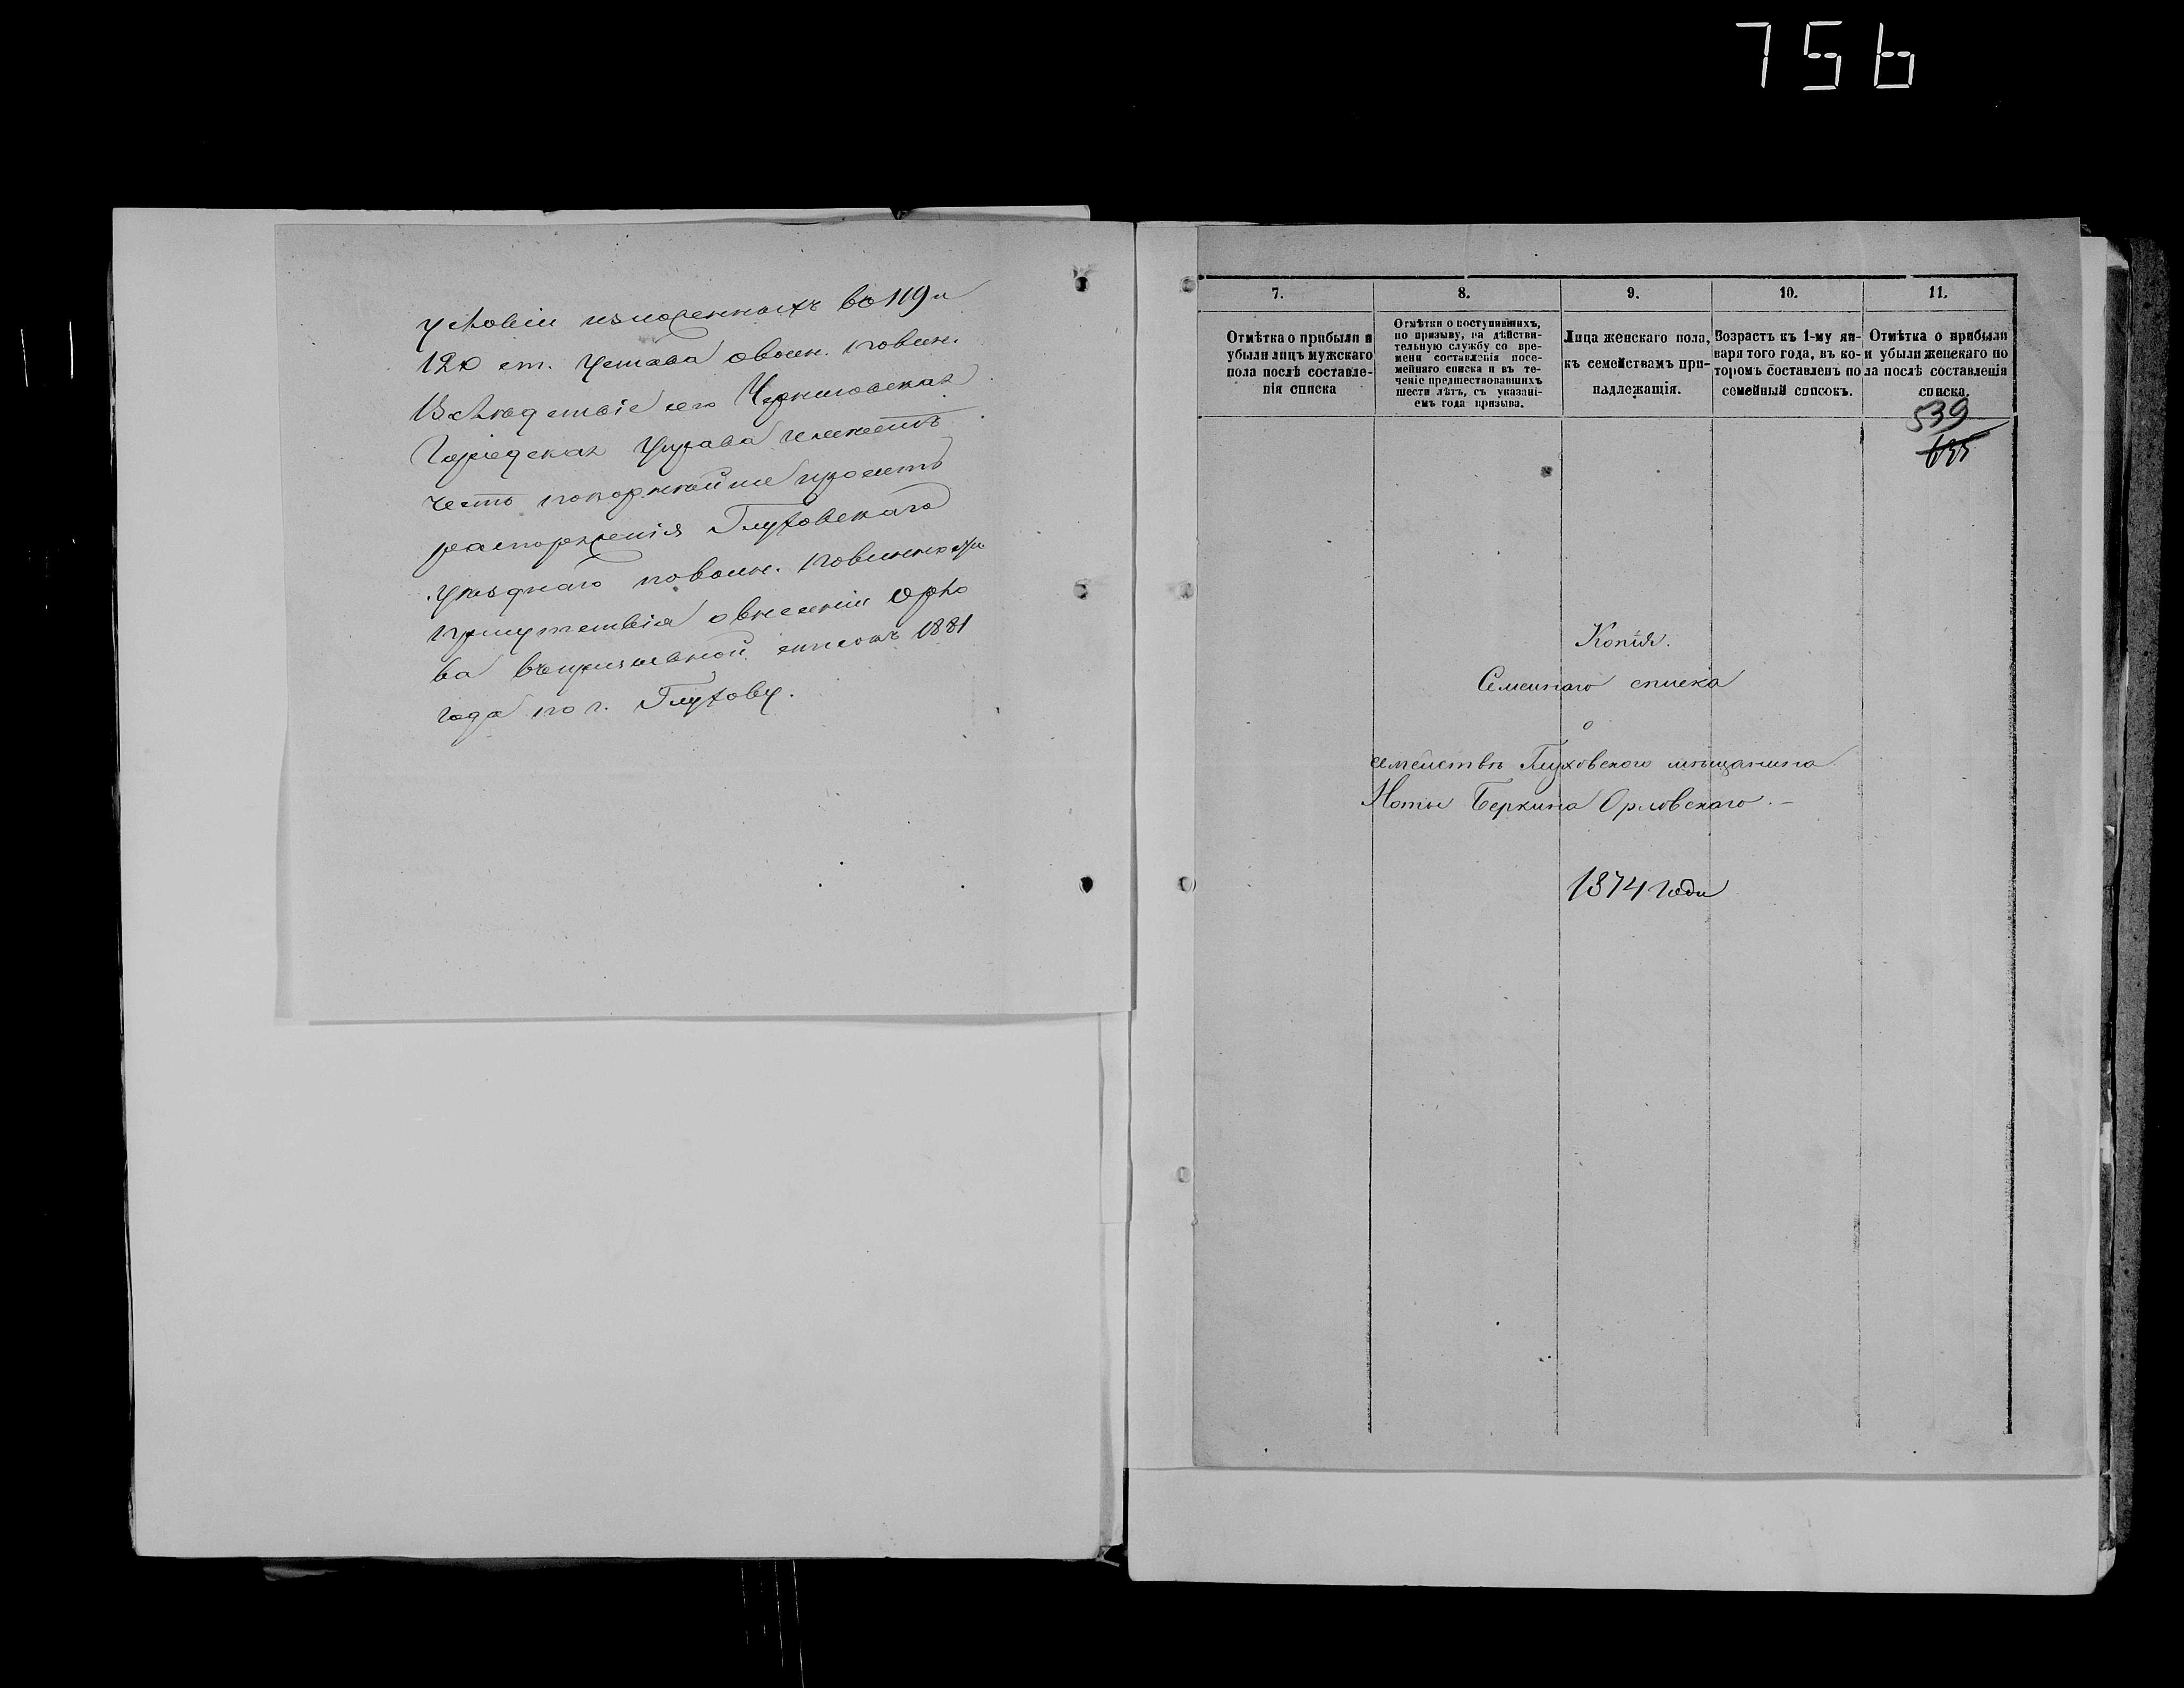 756
условіи изложенныхъ въ 119 и
120 ст. Устава о воин. повин.
Вслѣдствіе сего Черниговская
Городская Управа имѣетъ
честь покорнѣйше просить
распоряженія Глуховскаго
уѣзднаго по воин. повинности
присутствія о внесеніи Орло
ва въ призывной списокъ 1881
года по г. Глухову.
7.
8.
9.
10.
11.
Отмѣтка о прибыли и
убыли лицъ мужскаго
пола послѣ составле-
нія списка
Отмѣтки о поступившихъ,
по призыву, на дѣйстви-
тельную службу со вре-
мени составленія посе-
мейнаго списка и въ те-
ченіе предшествовавшихъ
шести лѣтъ, съ указані-
емъ года призыва.
Лица женскаго пола,
къ семействамъ при-
надлежащія.
Возрастъ къ 1-му ян-
варя того года, въ ко-
торомъ составленъ по
семейный списокъ.
Отмѣтка о прибыли
и убыли женскаго по
ла послѣ составленія
списка.
539
Копія.
Семейнаго списка
о
семействѣ Глуховского мѣщанина
Ноты Беркина Орловскаго.—
1874 года